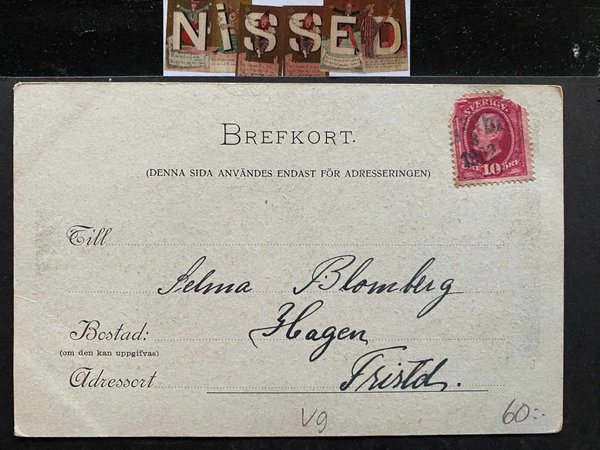 NISSED
BREFKORT.
(DENNA SIDA ANVÄNDES ENDAST FÖR ADRESSERINGEN)
SVERIGE
10 ÖRE
Till
Selma Blomberg
Bostad: Hagen
(om den kan uppgifvas)
Adressort Fristd.
Vg
60:-